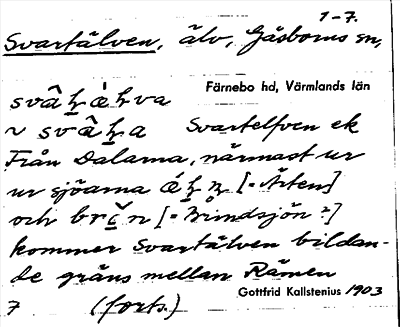 1-7.
Svartälven, älv, Gåsborns sn,
Färnebo hd, Värmlands län
svârt älva
~ svârta Svartelfven ek
Från Dalarna, närmast ur
ur sjöarna [= Ärten]
och [= Brindsjön?]
kommer Svartälven bildan-
de gräns mellan Rämen
Gottfrid Kallstenius 1903
7 (forts.)